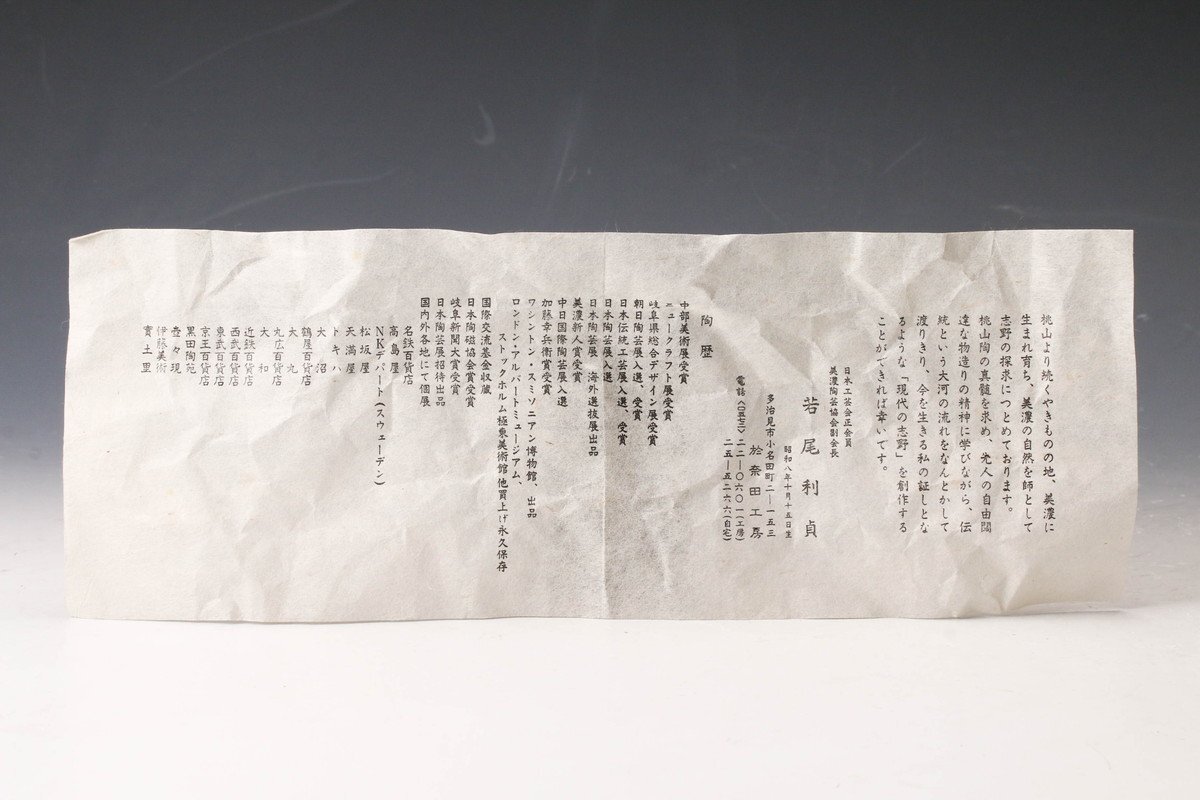 桃山より続くやきものの地、美濃に
生まれ育ち、美濃の自然を師として
志野の探求につとめております。
桃山陶の真髄を求め、先人の自由闊
達な物造りの精神に学びながら、伝
統という大河の流れをなんとかして
渡りきり、今を生きる私の証しとな
るような「現代の志野」を創作する
ことができれば幸いです。
日本工芸会正会員
美濃陶芸協会副会長
若尾利貞
昭和八年十月十五日生
多治見市小名田町二-一五三
於奈田工房
電話〈〇五七二〉二二-〇六〇一(工房)
二五-五二六六(自宅)
陶歴
中部美術展受賞
ニュークラフト展受賞
岐阜県総合デザイン展受賞
朝日陶芸展入選、受賞
日本伝統工芸展入選、受賞
日本陶芸展入選
日本陶芸展 海外選抜展出品
美濃新人賞受賞
中日国際陶芸展入選
加藤幸兵衛賞受賞
ワシントン・スミソニアン博物館、出品
ロンドン・アルバートミュージアム、
ストックホルム極東美術館他買上げ永久保存
国際交流基金収蔵
日本陶磁協会賞受賞
岐阜新聞大賞受賞
日本陶芸展招待出品
国内外各地にて個展
名鉄百貨店
高島屋
NKデパート(スウェーデン)
松坂屋
天満屋
トキハ
大沼
鶴屋百貨店
大丸
丸広百貨店
大和
近鉄百貨店
西武百貨店
東武百貨店
京王百貨店
黒田陶苑
壺々現
伊藤美術
實土里